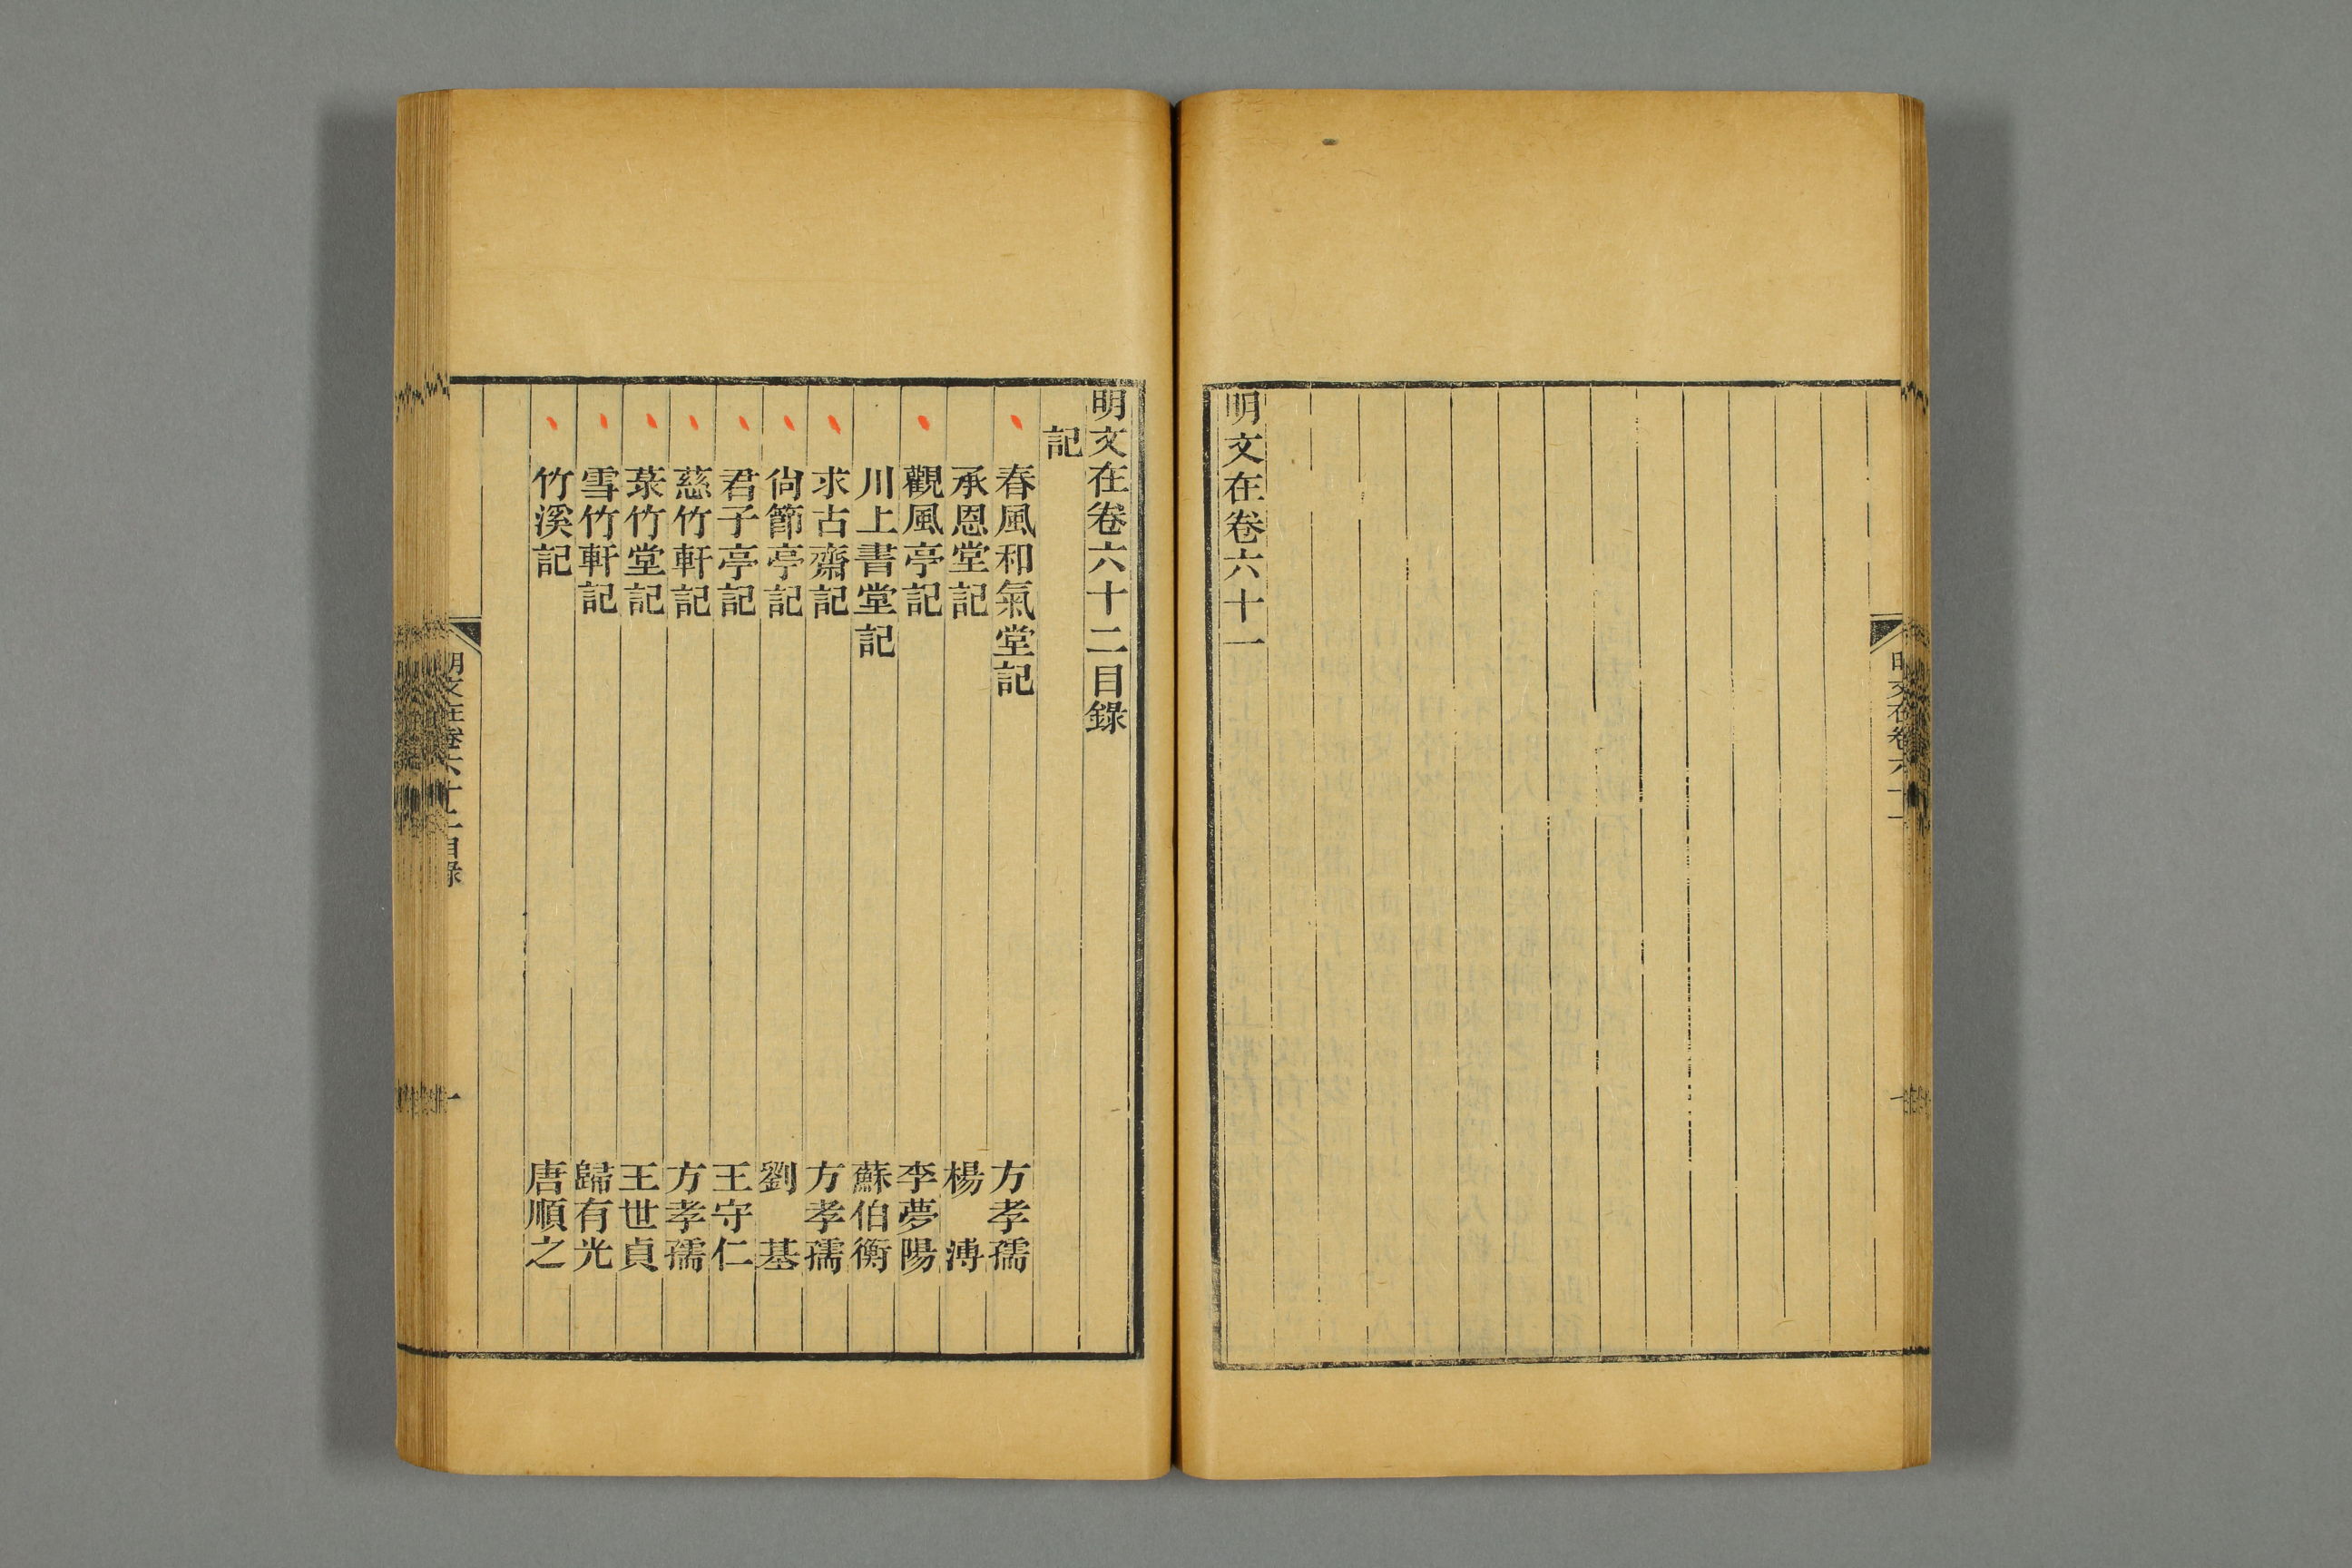 明文在卷六十一
明文在卷六十二目錄
記
春風和氣堂記 方孝孺
承恩堂記 楊溥
觀風亭記 李夢陽
川上書堂記 蘇伯衡
求古齋記 方孝孺
尙節亭記 劉基
君子亭記 王守仁
慈竹軒記 方孝孺
菉竹堂記 王世貞
雪竹軒記 歸有光
竹溪記 唐順之
明文在卷六十二目錄
一